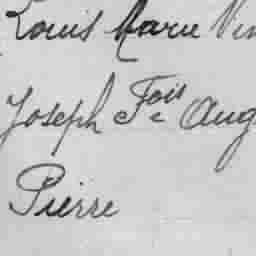 Louis Marie Vin
Joseph Fois Aug
Pierre